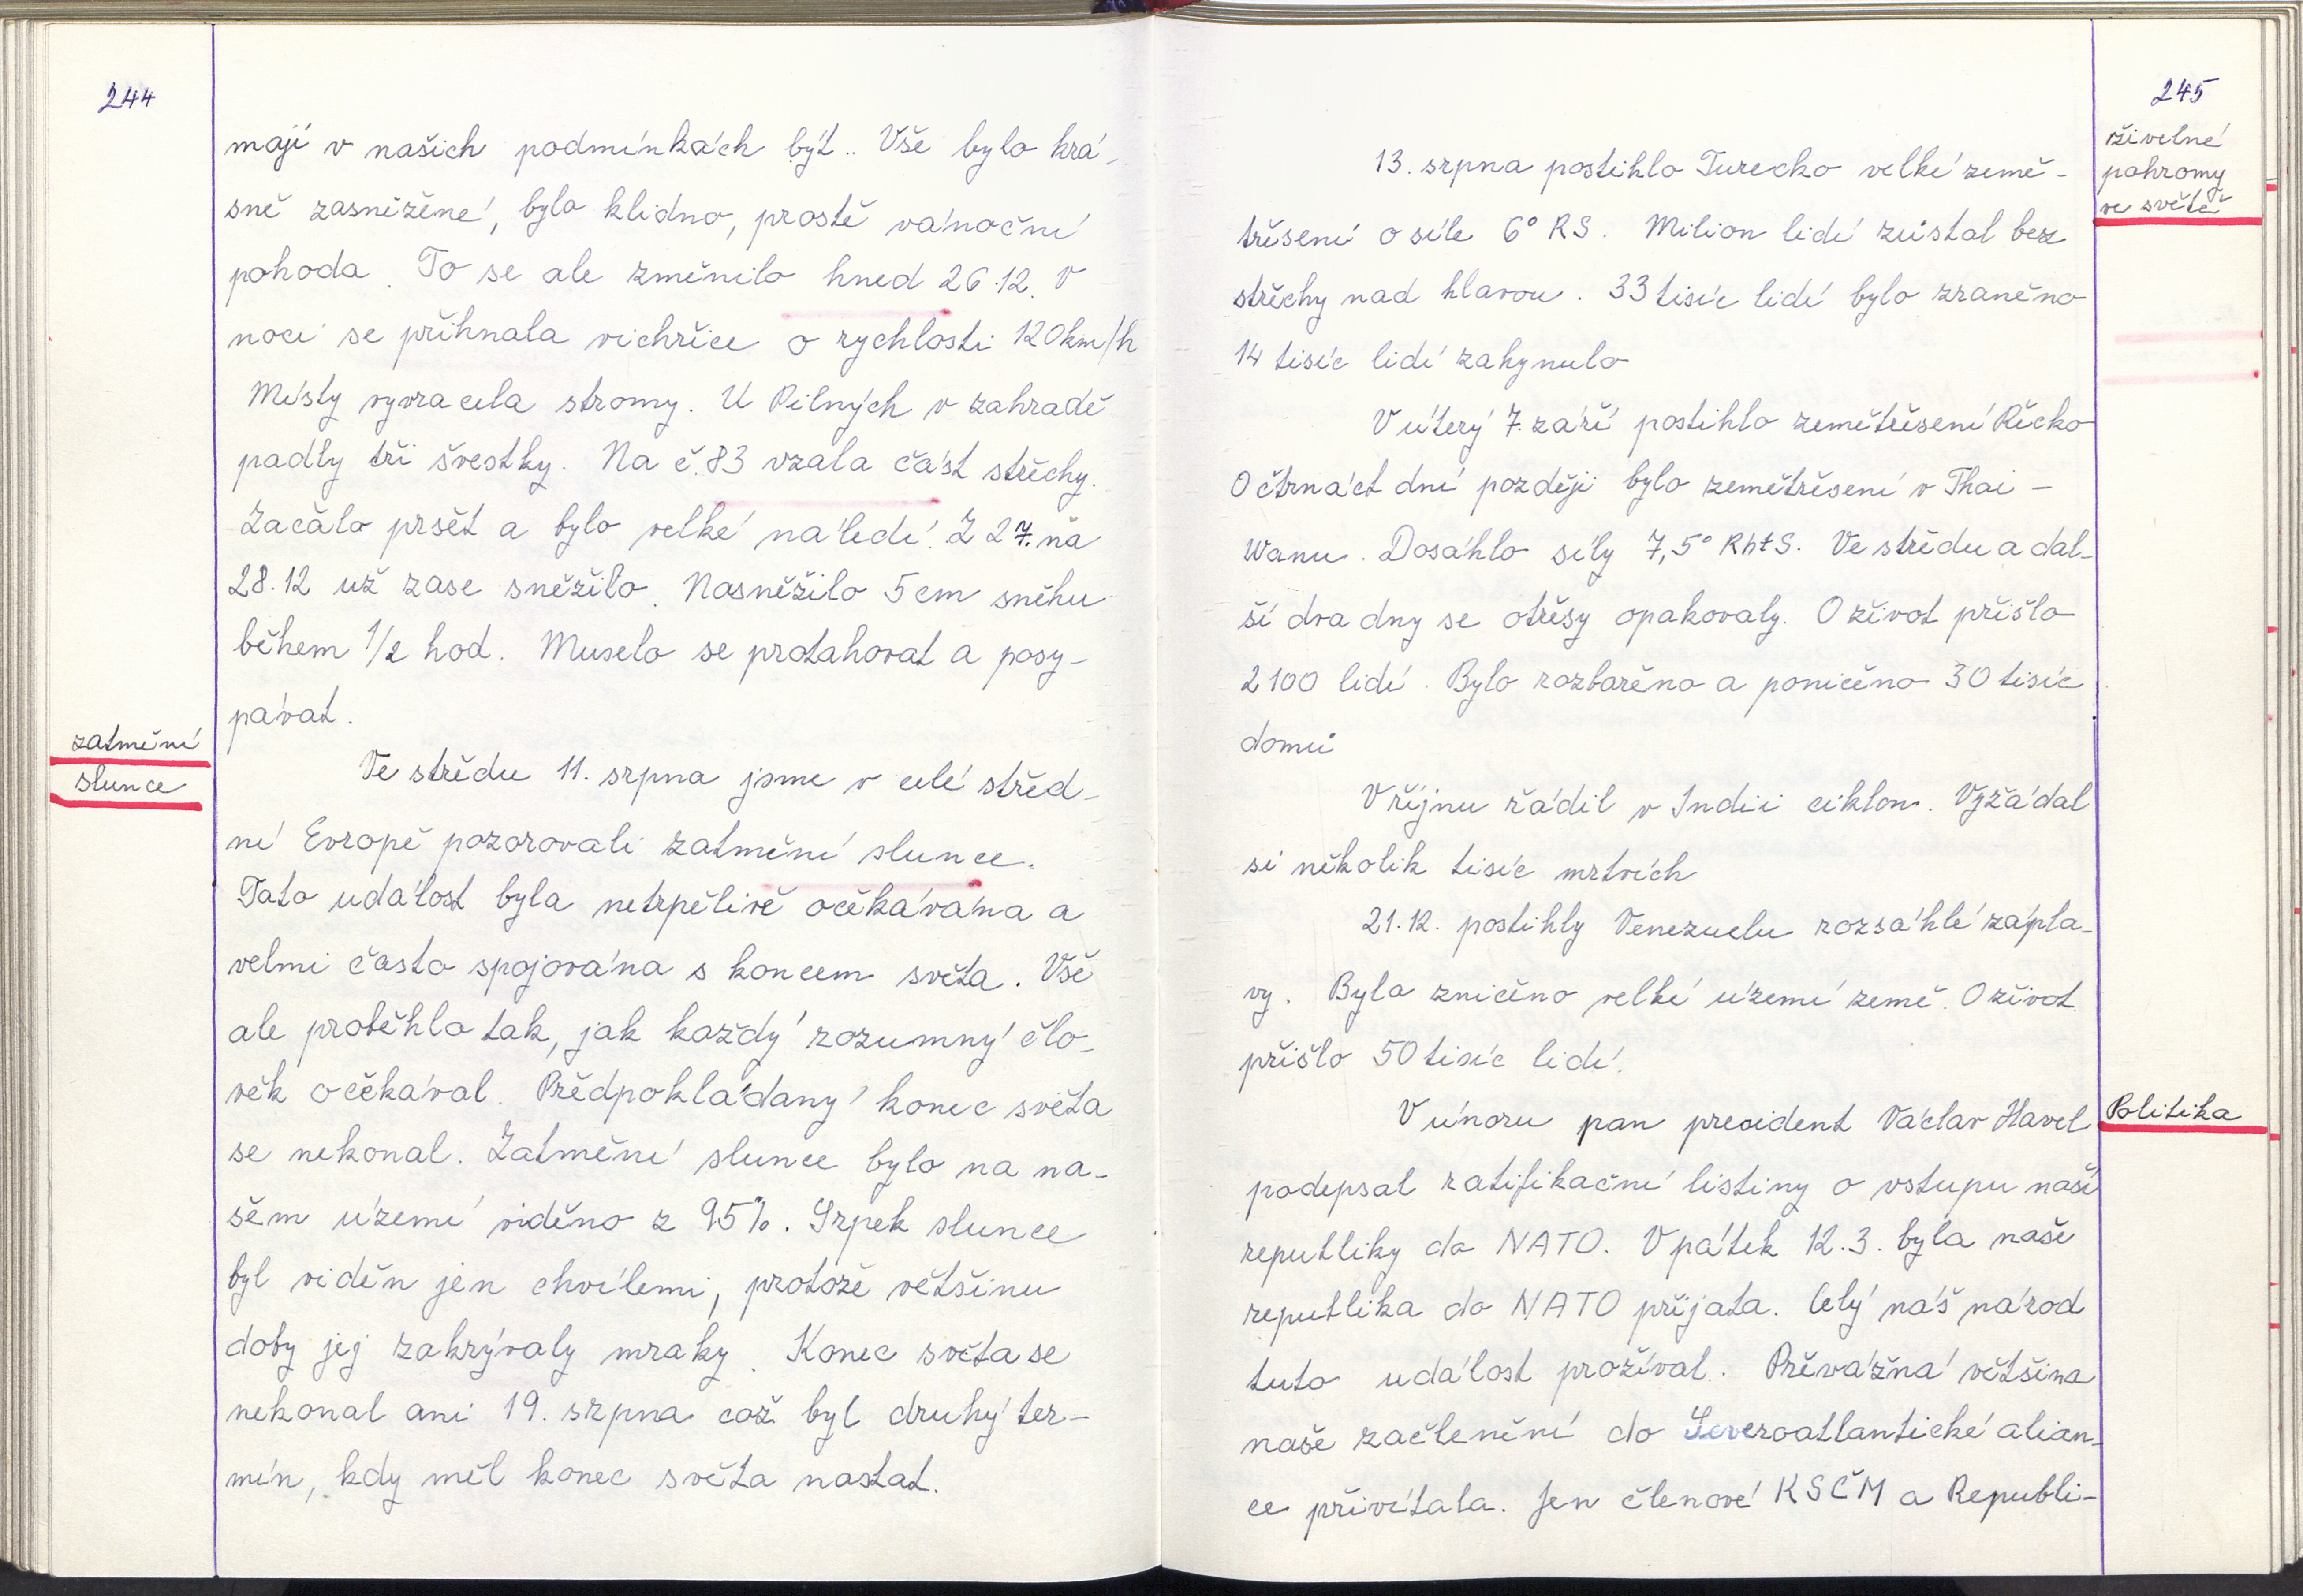 244
mají v našich podmínkách být.. Vše bylo krá-
sně zasněžené, bylo klidno, prostě vánoční
pohoda. To se ale změnilo hned 26.12. V
noci se přihnala vichřice o rychlosti 120km/h
Místy vyvracela stromy. U Pilných v zahradě
padly tři švestky. Na č.83 vzala část střechy.
Začalo pršet a bylo velké náledí. Z 27. na
28.12 už zase sněžilo. Nasněžilo 5 cm sněhu
během 1/2 hod. Muselo se protahovat a posy-
pávat.
zatmění
slunce
Ve středu 11. srpna jsme v celé střed-
ní Evropě pozorovali zatmění slunce.
Tato událost byla netrpělivě očekávána a
velmi často spojována s koncem světa. Vše
ale proběhlo tak, jak každý rozumný člo-
věk očekával. Předpokládaný konec světa
se nekonal. Zatmění slunce bylo na na-
šem území viděno z 95%. Srpek slunce
byl viděn jen chvílemi, protože většinu
doby jej zakrývaly mraky. Konec světa se
nekonal ani 19. srpna což byl druhý ter-
mín, kdy měl konec světa nastat.
245
živelné
pohromy
ve světě
13. srpna postihlo Turecko velké země-
třesení o síle 6° RS. Milion lidí zůstal bez
střechy nad hlavou. 33 tisíc lidí bylo zraněno
14 tisíc lidí zahynulo
V úterý 7. září postihlo zemětřesení Řecko
O čtrnáct dní později bylo zemětřesení v Thai-
wanu. Dosáhlo síly 7,5° RhtS. Ve středu a dal-
ší dva dny se otřesy opakovaly. O život přišlo
2100 lidí. Bylo rozbořeno a poničeno 30 tisíc
domů
V říjnu řádil v Indii ciklon. Vyžádal
si několik tisíc mrtvích
21.12. postihly Venezuelu rozsáhlé zápla-
vy. Bylo zničeno velké území země. O život
přišlo 50 tisíc lidí.
Politika
V únoru pan prezident Václav Havel
podepsal ratifikační listiny o vstupu naší
republiky do NATO. V pátek 12.3. byla naše
republika do NATO přijata. Celý náš národ
tuto událost prožíval. Převážná většina
naše začlenění do Severoatlantické alian-
ce přivítala. Jen členové KSČM a Republi-